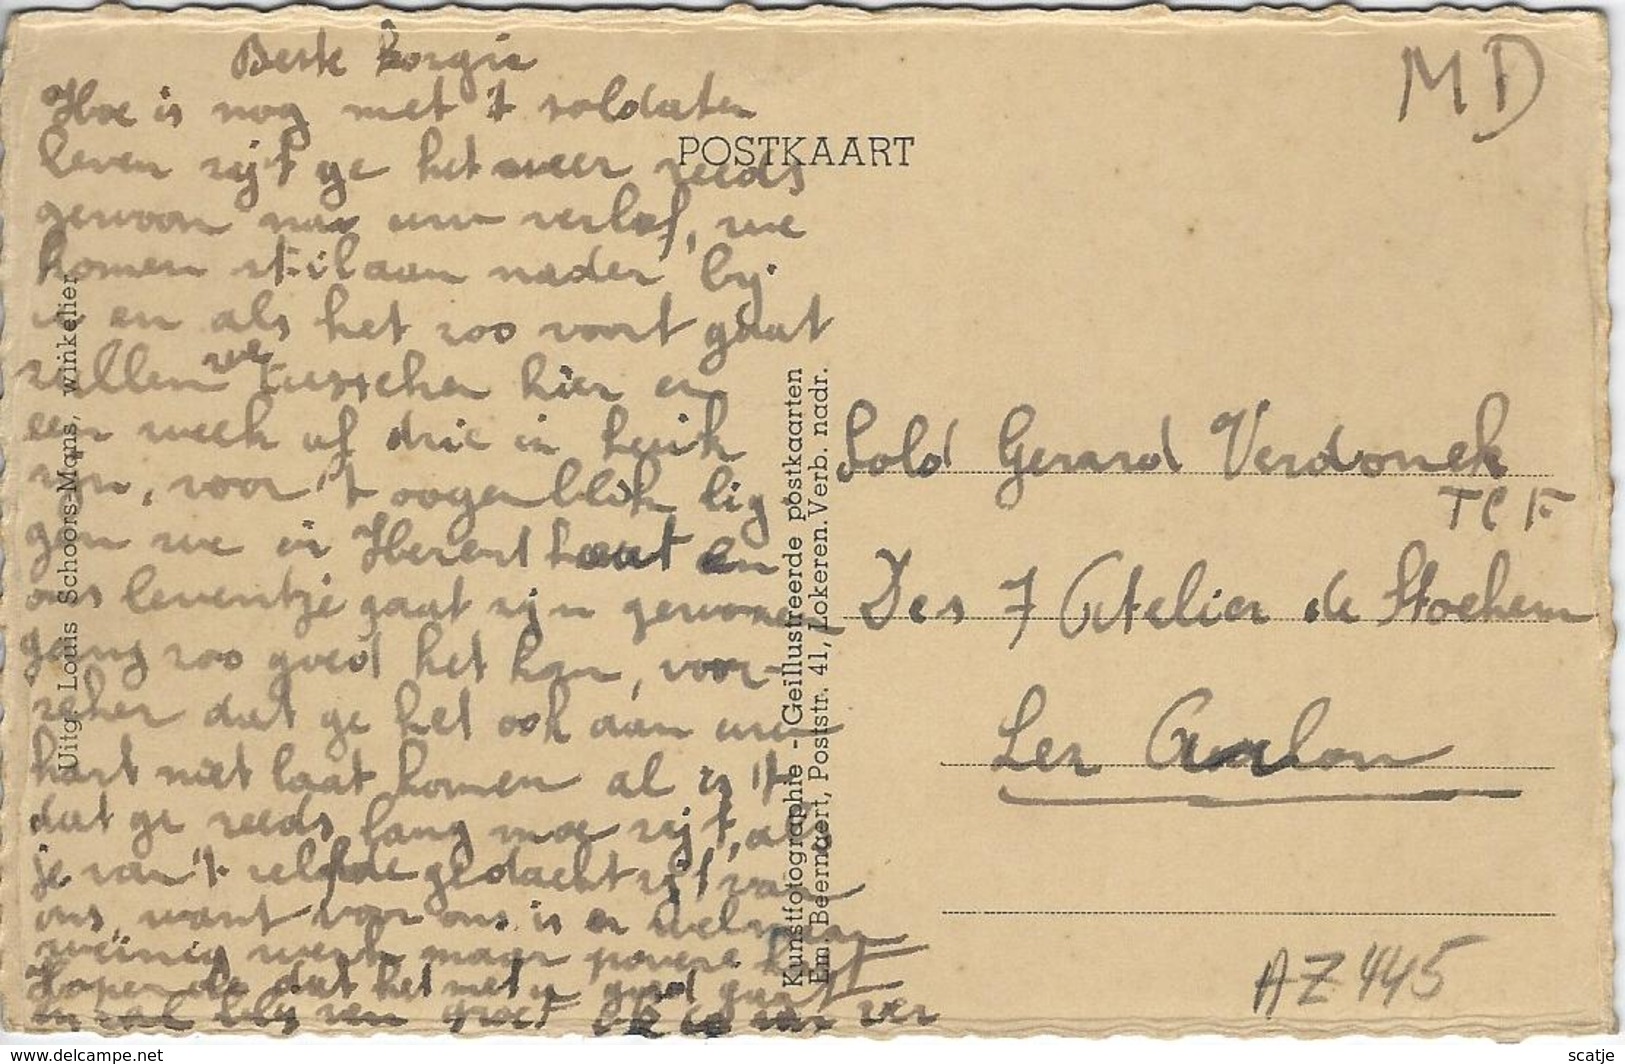 Beste
Hoe is nog met 't soldaten
leven zijt ge het weer reeds
gewoon na uw verlof, we
komen stilaan nader bij
u en als het zoo voort gaat
zullen we tusschen hier en
een week of drie in
zijn, voor 't oogenblik lig
gen we in Herenthout en
ons leventje gaat zijn gewonen
gang zoo goed het kan, voor-
zeker dat ge het ook aan uw
hart niet laat komen al is 't
dat ge reeds lang moe zijt, als
je van 't zelfde gedacht zijt van
ons, want voor ons is er
weinig werk maar povere kost
Hopende dat het met u goed gaat
POSTKAART
MD
Sold Gerard Verdonck
TCF
Des 7 Atelier de Stockem
Lez Arlon
AZ445
Uitg. Louis Schoors-Mons, winkelier
Kunstfotographie - Geïllustreerde postkaarten
Em. Beernaert, Poststr. 41, Lokeren. Verb. nadr.
https://www.delcampe.net
scatje